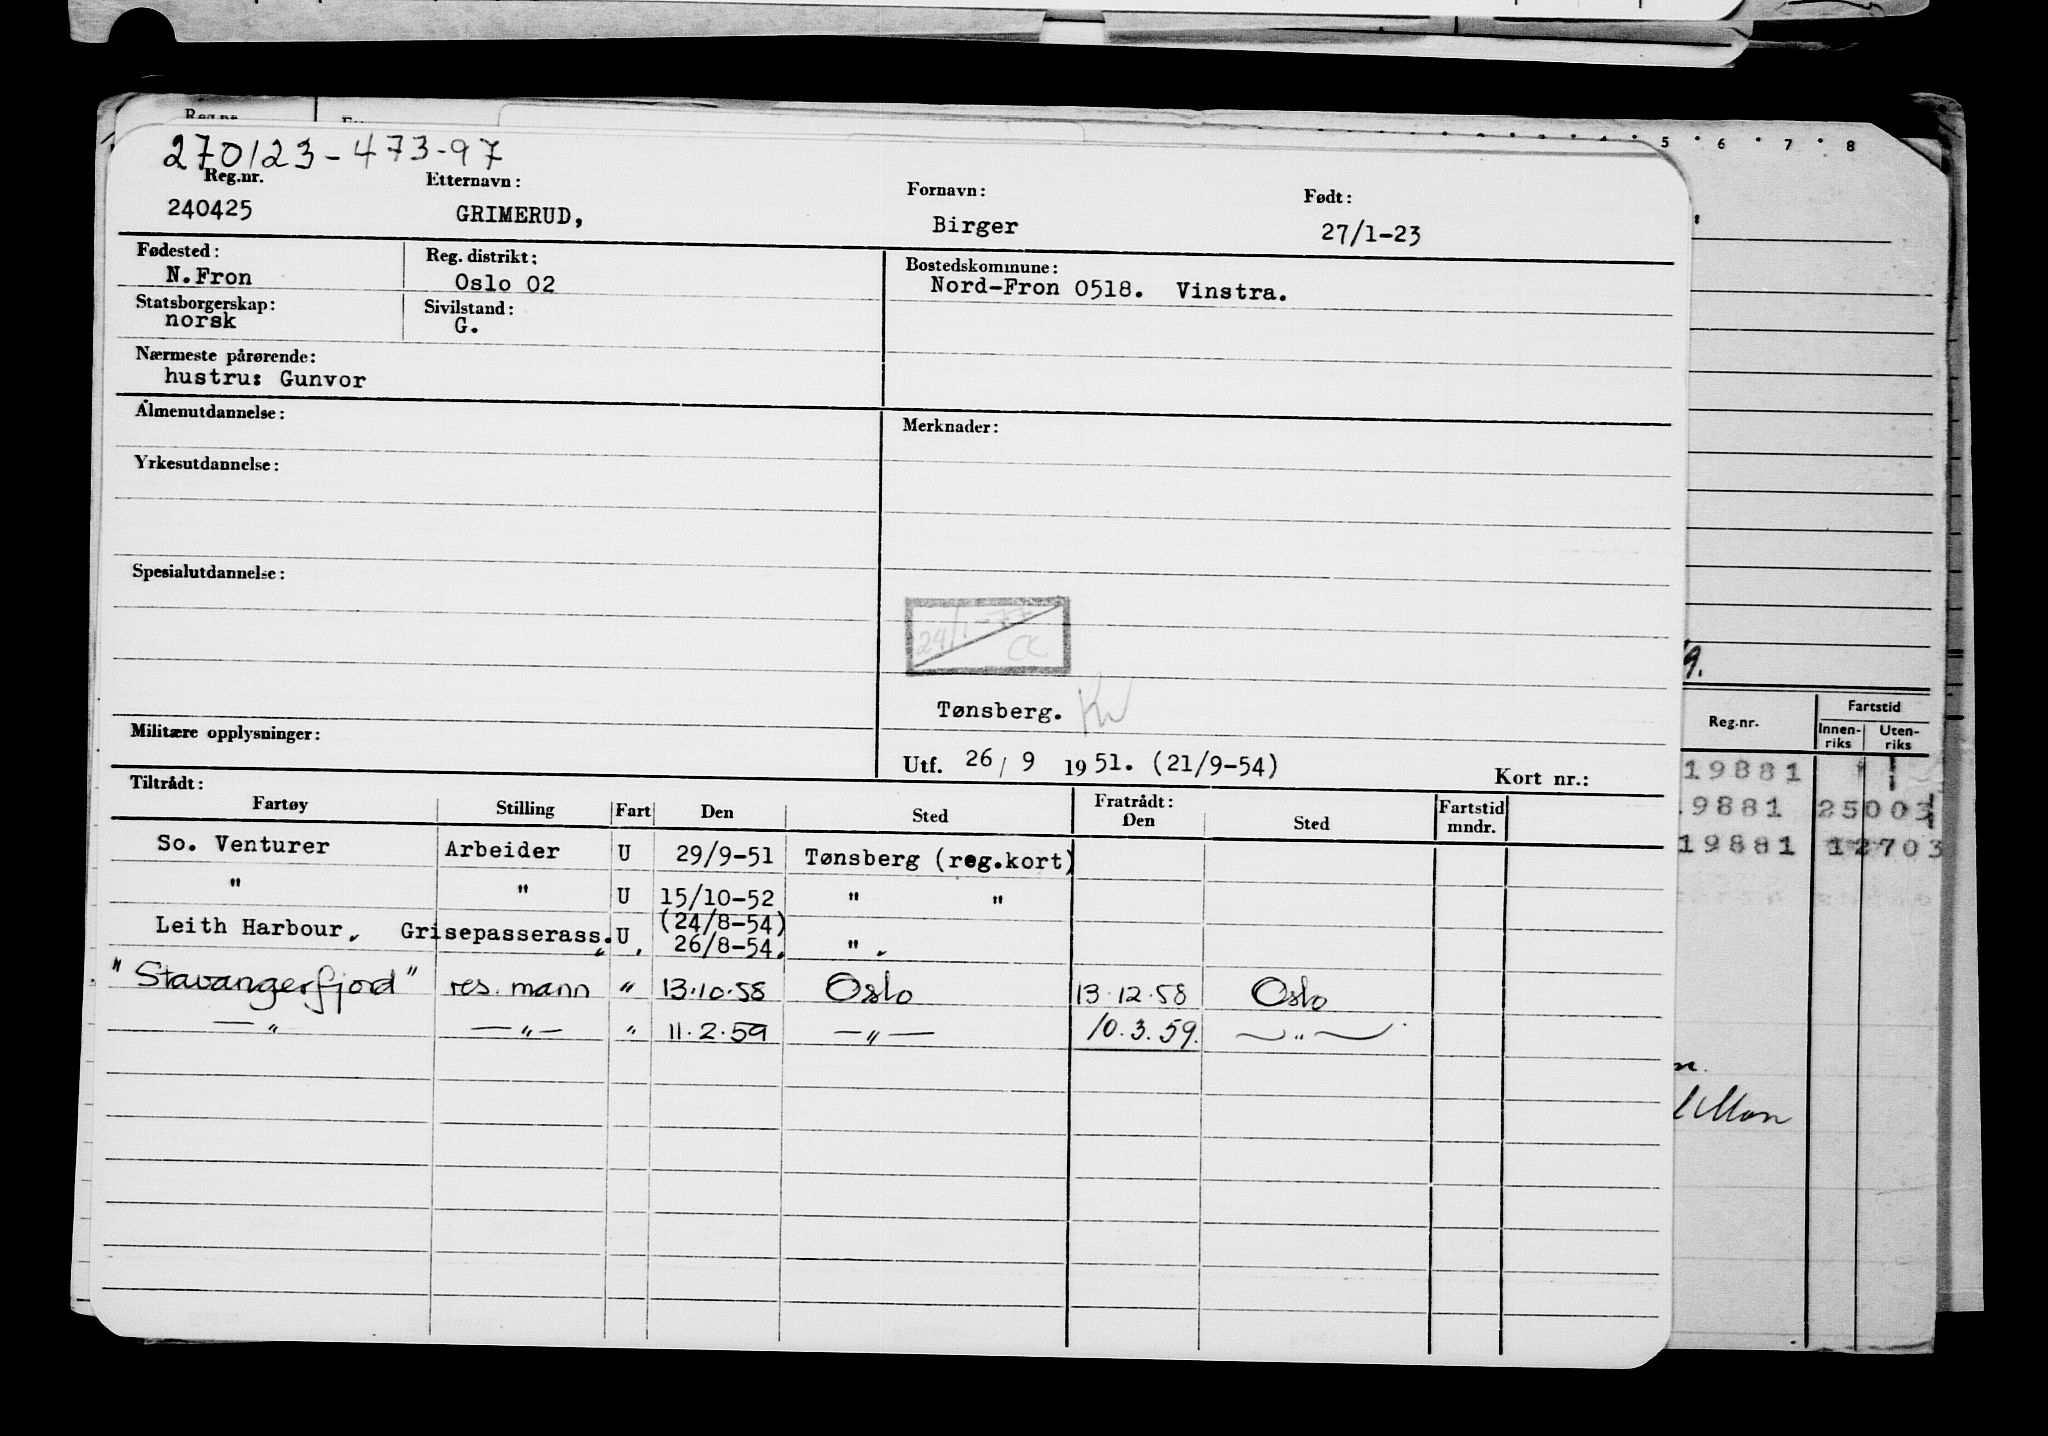 5 · 6 · 7 · 8
270123-473-97
Reg.nr. Etternavn: Fornavn: Født:
240425 GRIMERUD, Birger 27/1-23
Fødested: Reg. distrikt: Bostedskommune:
N.Fron Oslo 02 Nord-Fron 0518. Vinstra.
Statsborgerskap: Sivilstand:
norsk G.
Nærmeste pårørende:
hustru: Gunvor
Almenutdannelse: Merknader:
Yrkesutdannelse:
Spesialutdannelse:
24/1-77
Tønsberg.
Militære opplysninger:
Utf. 26/9 1951. (21/9-54) Kort nr.:
Tiltrådt: Fratrådt:
Fartøy Stilling Fart Den Sted Den Sted Fartstid mndr.
So. Venturer Arbeider U 29/9-51 Tønsberg (reg.kort)
" " U 15/10-52 " "
(24/8-54)
Leith Harbour. Grisepasserass. U 26/8-54. "
"Stavangerfjord" res. mann " 13.10.58 Oslo 13.12.58 Oslo
—"— —"— " 11.2.59 —"— 10.3.59. —"—
9.
Reg.nr. Fartstid
Innen-riks Uten-riks
19881
.9881 25003
19881 12703